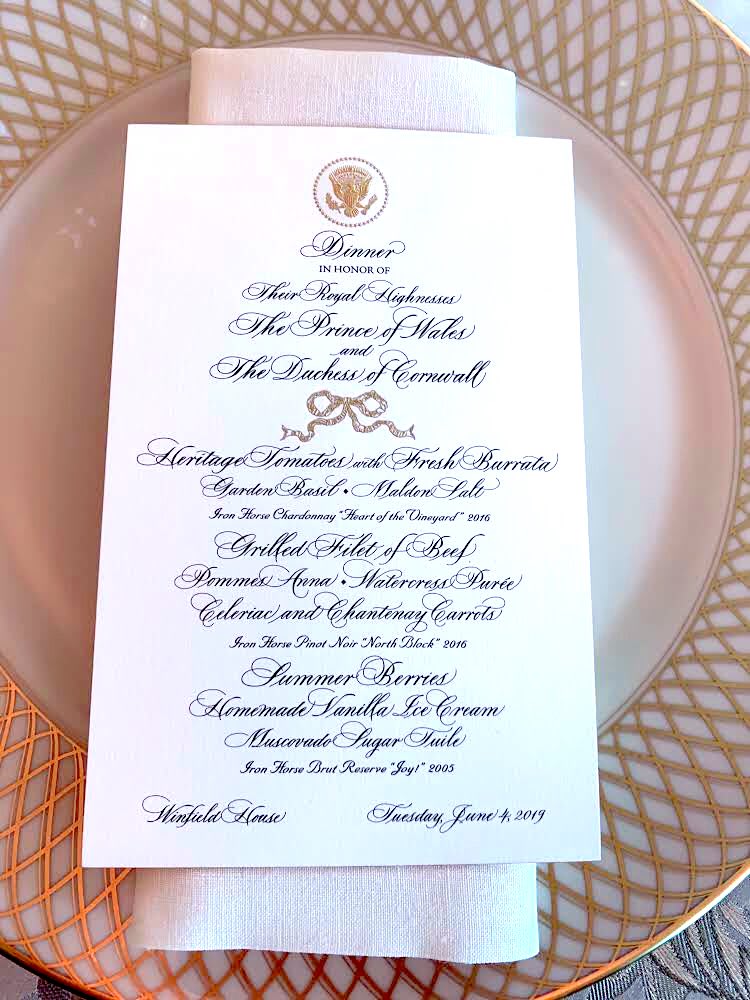 Dinner
IN HONOR OF
Their Royal Highnesses
The Prince of Wales
and
The Duchess of Cornwall
Heritage Tomatoes with Fresh Burrata
Garden Basil • Maldon Salt
Iron Horse Chardonnay "Heart of the Vineyard" 2016
Grilled Filet of Beef
Pommes Anna • Watercress Purée
Celeriac and Chantenay Carrots
Iron Horse Pinot Noir "North Block" 2016
Summer Berries
Homemade Vanilla Ice Cream
Muscovado Sugar Tuile
Iron Horse Brut Reserve "Joy!" 2005
Winfield House Tuesday, June 4, 2019